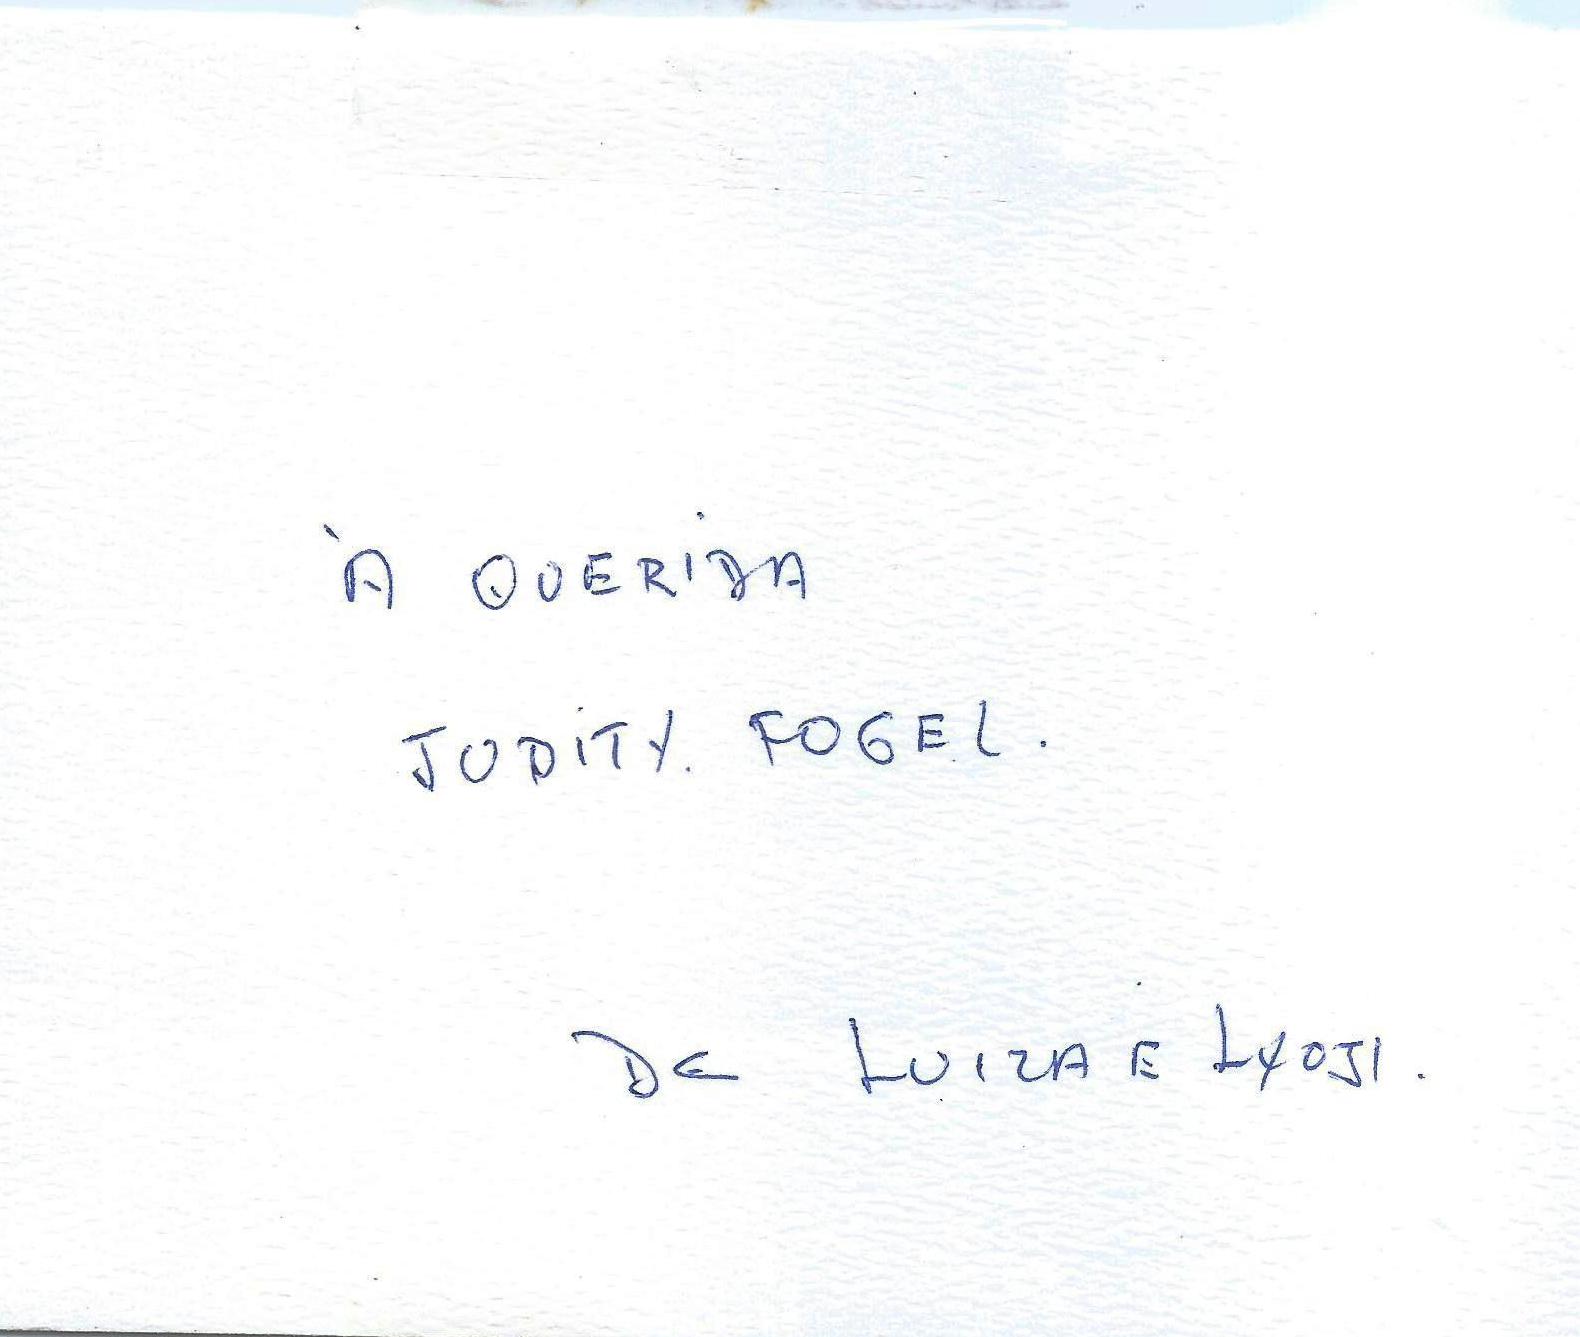 À QUERIDA
JUDITY. FOGEL.
DE LUIZA E LYOJI.